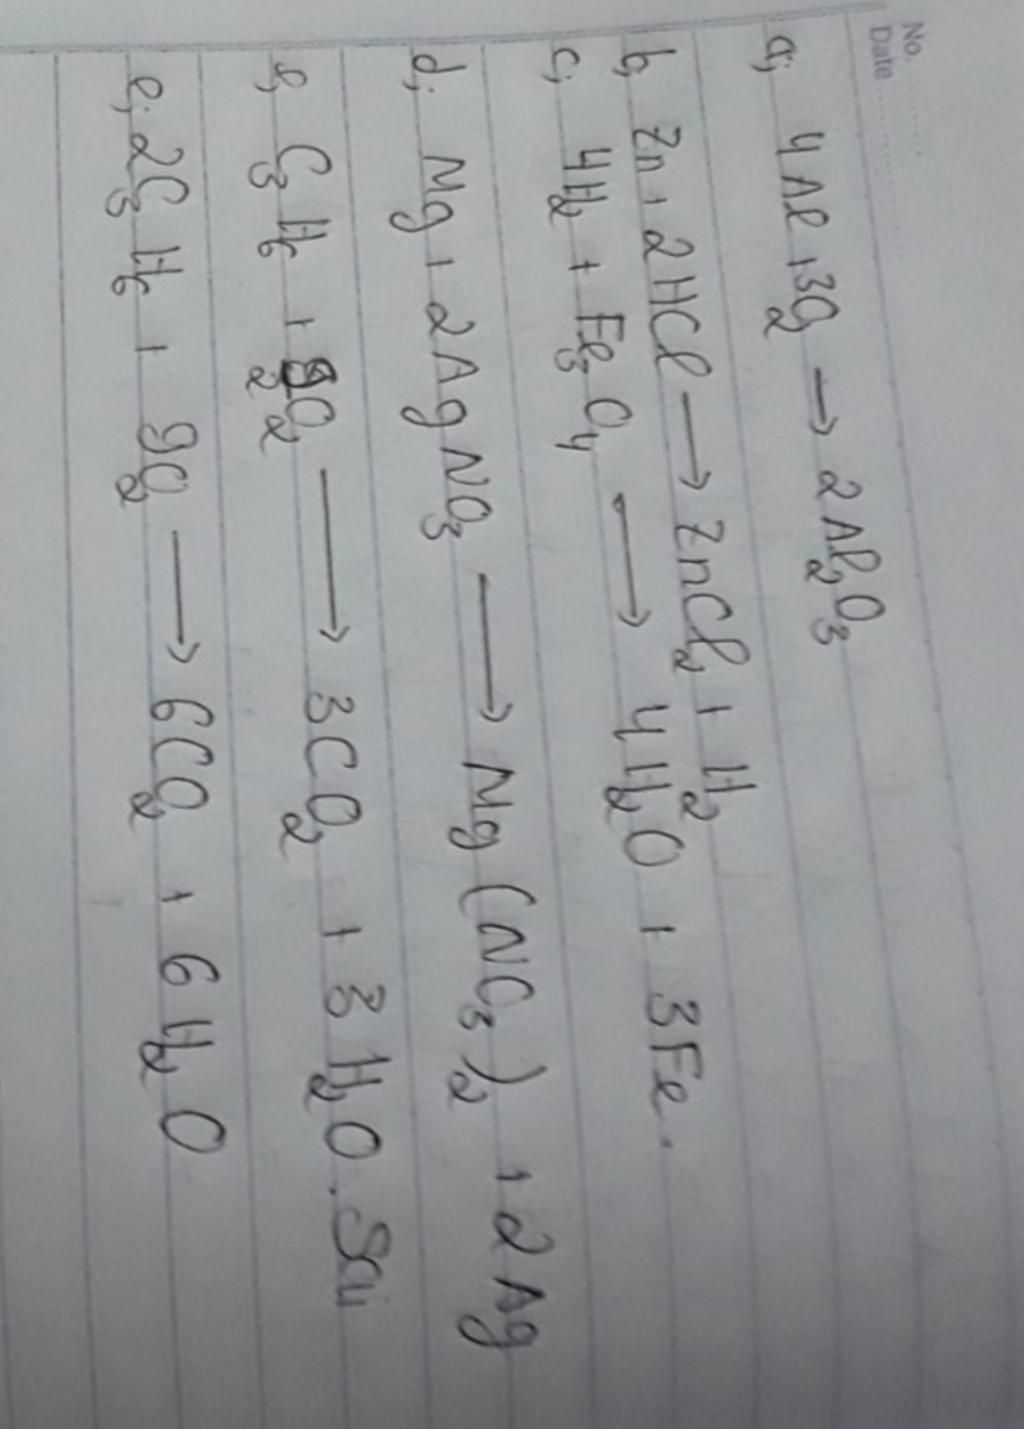 No. ............
Date ............
a, 4Al + 3O₂ → 2Al₂O₃
b, Zn + 2HCl → ZnCl₂ + H₂
c, 4H₂ + Fe₃O₄ → 4H₂O + 3Fe.
d, Mg + 2AgNO₃ → Mg(NO₃)₂ + 2Ag
e, C₃H₆ + 9/2O₂ → 3CO₂ + 3H₂O. Sai
e, 2C₃H₆ + 9O₂ → 6CO₂ + 6H₂O